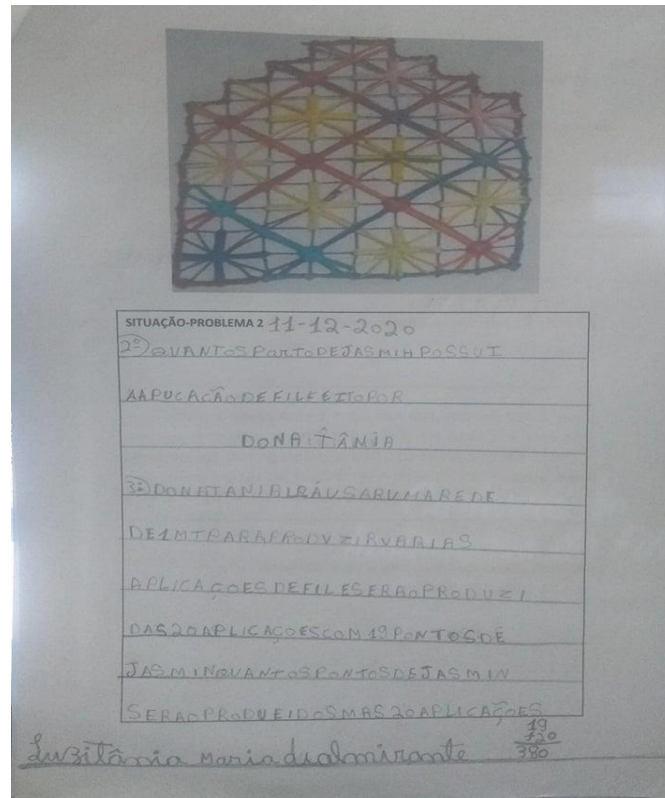 SITUAÇÃO-PROBLEMA 2 11-12-2020
2º) QUANTOS PONTO DE JASMIM POSSUI
A APLICAÇÃO DE FILE FEITO POR
DONA TÂNIA
3º) DONA TANIA IRÁ USAR UMA REDE
DE 1 MT PARA PRODUZIR VARIAS
APLICAÇOES DE FILE SERAO PRODUZI
DAS 20 APLICAÇOES COM 19 PONTOS DE
JASMIN QUANTOS PONTOS DE JASMIN
SERAO PRODUEIDOS MAS 20 APLICAÇÕES
19
+20
380
Luzitânia Maria dialmirante